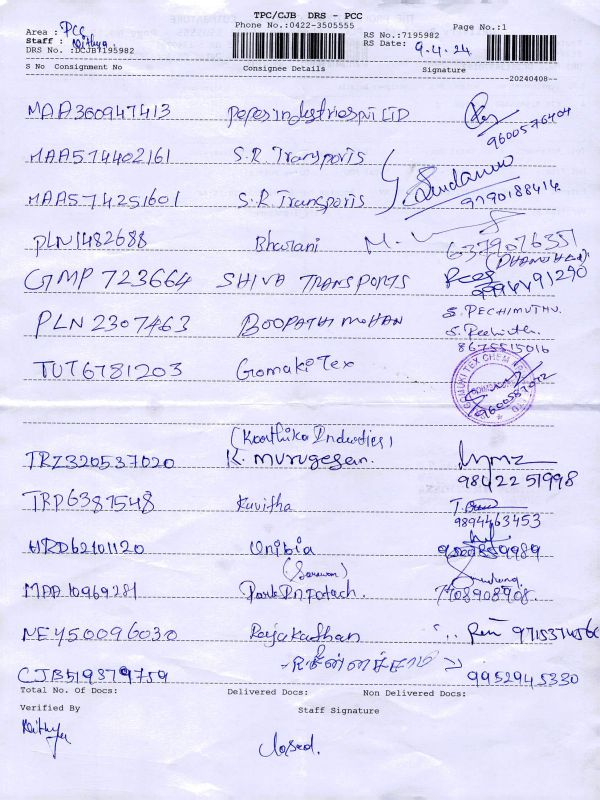 TPC/CJB DRS - PCC
Phone No.:0422-3505555
Page No.:1
Area : PCC
Staff : Nithya.
DRS No. :DCJB7195982
RS No.:7195982
RS Date: 9-4-24
S No Consignment No Consignee Details Signature
20240408
MAA360947413 Pepes industries Pvt LTD 9600576404
MAA574402161 S.R Transports
MAA574251601 S.R Transports 9790188414
PLN1482688 Bharani 6379076351
GMP 723664 SHIVA TRANSPORTS
PLN 2307463 BOOPATHI MOHAN S. PECHIMUTHU
8675515016
TUT6781203 Gomaki Tex 9600587072
(Karthika Industies)
TRZ320537020 K. Murugesan. 9842251998
TRP6381548 Kavitha 9894463453
HRD62101120 Unibia
(Saravan)
MAA10969281 Park Infotech. 7408908908.
NEY50096030 Rajakaathan
CJB519379759 சின்னச்சாமி 9952945330
Total No. Of Docs: Delivered Docs: Non Delivered Docs:
Verified By Staff Signature
Nithya closed.